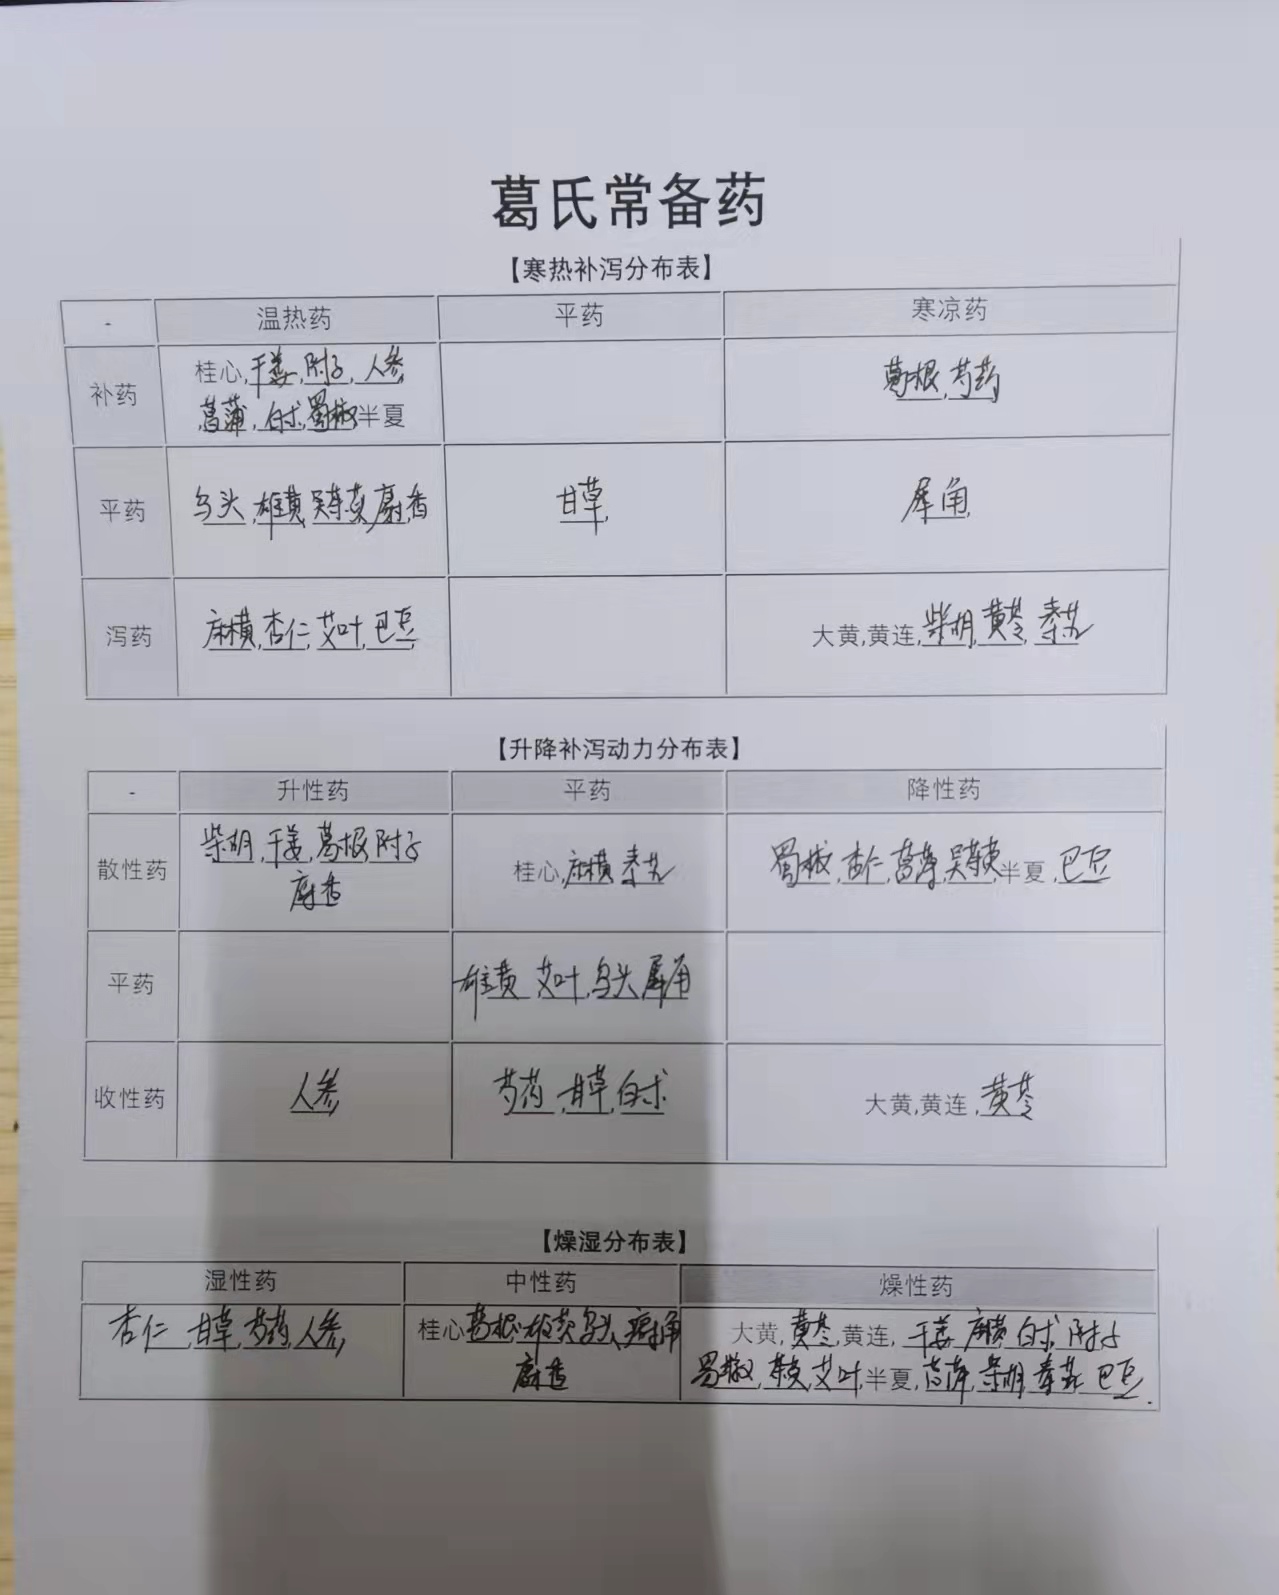 葛氏常备药
【寒热补泻分布表】
- 温热药 平药 寒凉药
补药 桂心,干姜,附子,人参, 葛根,芍药
菖蒲,白术,蜀椒半夏
平药 乌头,雄黄,吴茱萸,麝香 甘草, 犀角,
泻药 麻横,杏仁,艾叶,巴豆, 大黄,黄连,柴胡,黄芩,秦艽
【升降补泻动力分布表】
- 升性药 平药 降性药
散性药 柴胡,干姜,葛根,附子 桂心,麻横 秦艽 蜀椒,杏仁,菖蒲,吴茱萸,半夏,巴豆
麝香
平药 雄黄 艾叶,乌头,犀角
收性药 人参, 芍药,甘草,白术 大黄,黄连,黄芩
【燥湿分布表】
湿性药 中性药 燥性药
杏仁,甘草,芍药,人参, 桂心,葛根,雄黄,乌头,犀角 大黄,黄芩,黄连,干姜,麻黄,白术,附子
麝香 蜀椒,茱萸,艾叶,半夏,菖蒲,柴胡,秦艽,巴豆.